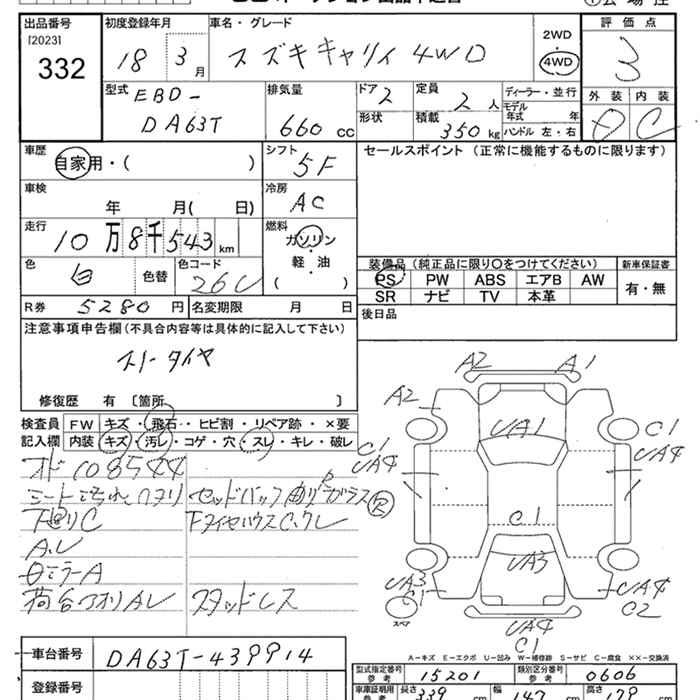 出品番号 初度登録年月 車名・グレード 評価点
[2023]
332
18 3月
スズキキャリイ 4WD
2WD
4WD
3
型式 EBD-
DA63T
排気量
660 cc
ドア 2
定員 2人
形状
積載 350kg
ディーラー・並行
モデル年式 年
ハンドル 左・右
外装 内装
D C
車歴
自家用・( )
シフト
5F
セールスポイント(正常に機能するものに限ります)
車検
年 月( 日)
冷房
AC
走行
10万8千543km
燃料
ガソリン
軽・油
( )
色
白
色替
色コード
26U
装備品(純正品に限り○をつけてください)
新車保証書
PS PW ABS エアB AW
SR ナビ TV 本革
有・無
R券 5280円
名変期限 月 日
後日品
注意事項申告欄(不具合内容等は具体的に記入して下さい)
スノータイヤ
修復歴 有 〔箇所 〕
検査員 FW キズ・飛石・ヒビ割・リペア跡・×要
記入欄 内装 キズ・汚レ・コゲ・穴・スレ・キレ・破レ
オド108544
下廻りC
Aレ
スタッドレス
A2 A1
A2
UA1
C1
C1
UA4
UA4
C1
UA3
UA3
C1
スペア
UA4
C2
UA4
C1
A-キズ E-エクボ U-凹み W-補修跡 S-サビ C-腐食 ××-交換済
車台番号 DA63T-439914
型式指定番号
参考
15201
類別区分番号
参考
0606
登録番号
車庫証明用
参考
長さ 339 cm
幅 147 cm
高さ 178 cm